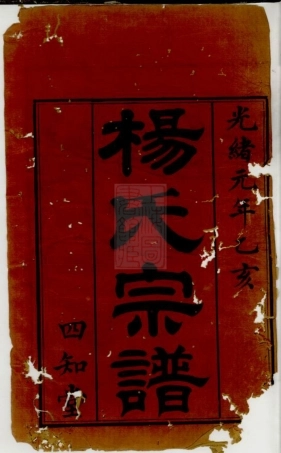 光緒元年乙亥
楊氏宗譜
四知堂